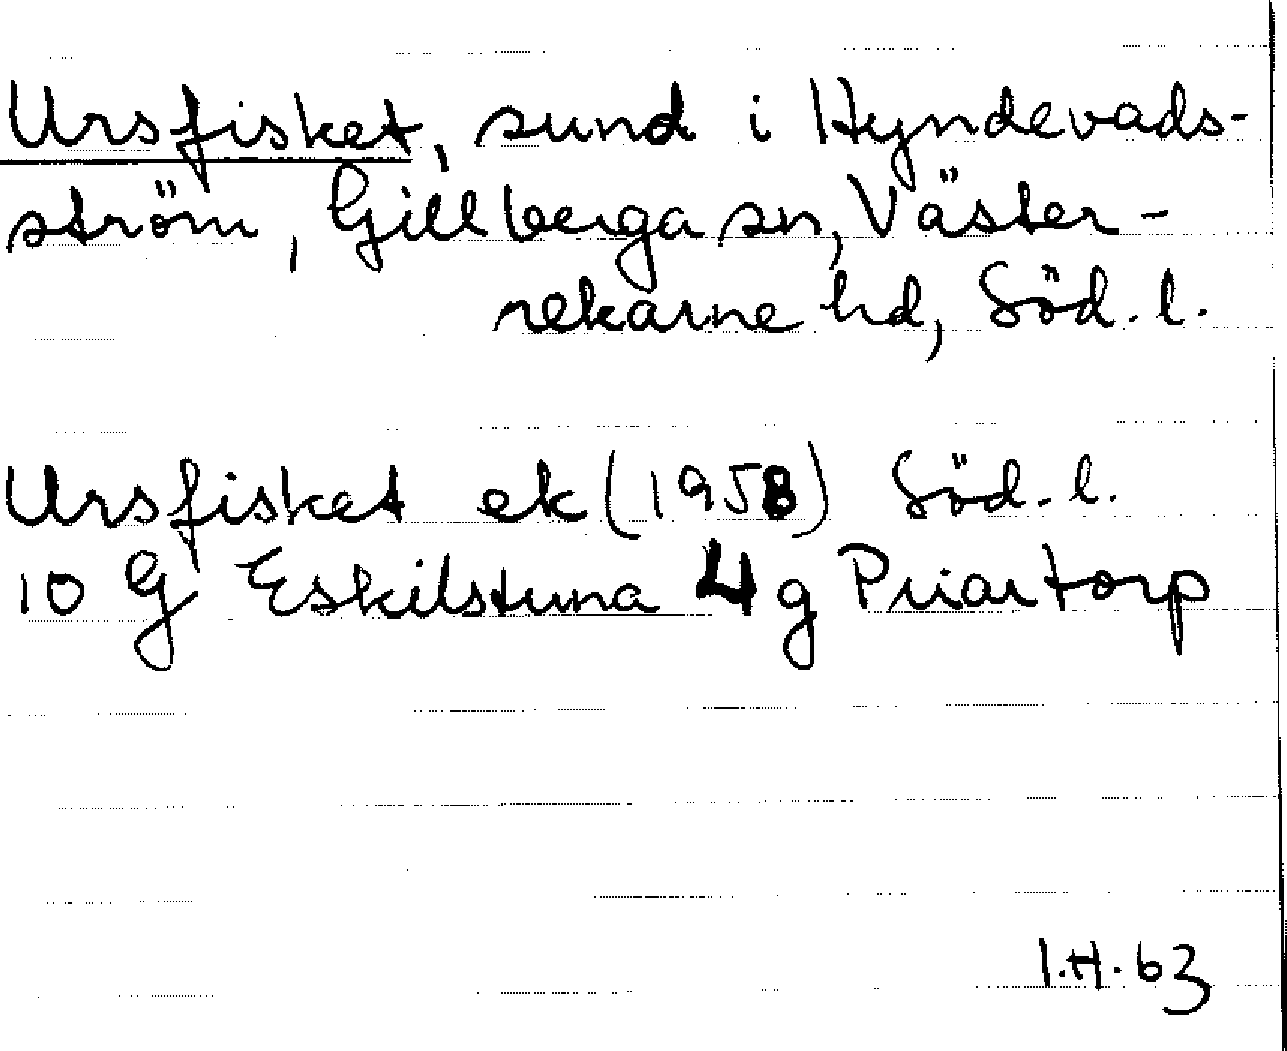 Ursfisket, sund i Hyndevads-
ström, Gillberga sn, Väster-
rekarne hd, Söd.l.
Ursfisket ek (1958) Söd.l.
10 G Eskilstuna 4 g Priartorp
I.H. 63